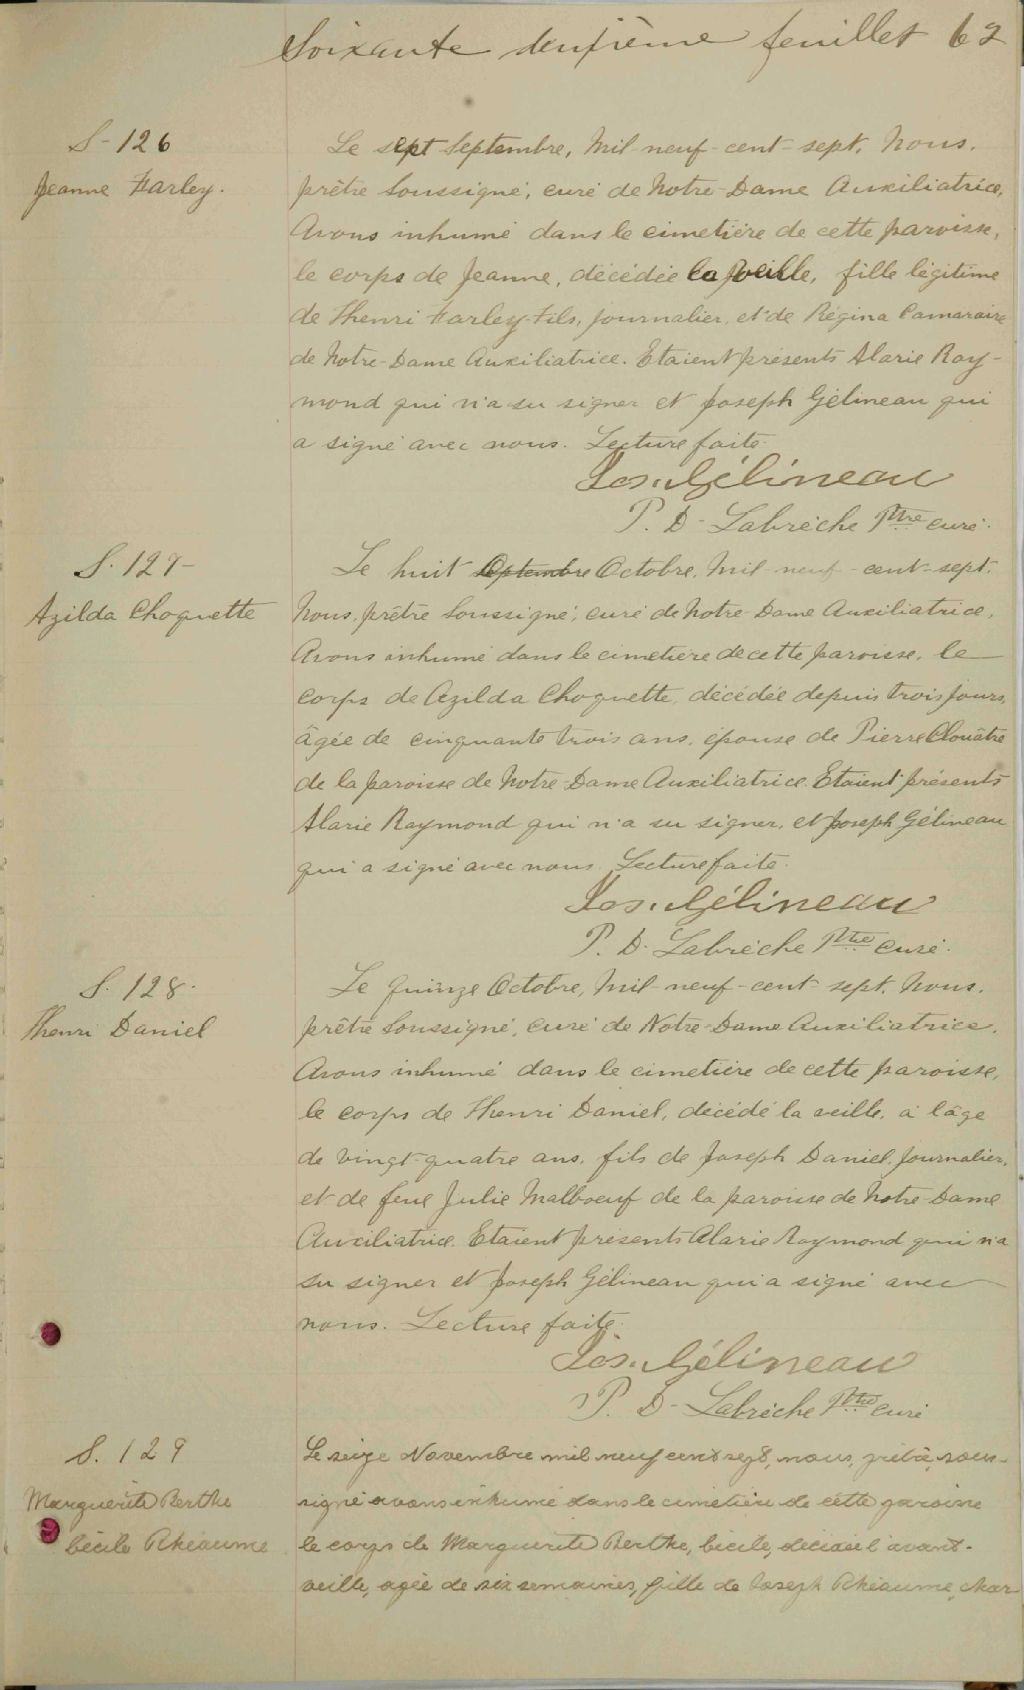 Soixante deuxième feuillet 62
S-126
Jeanne Farley.
Le sept Septembre, Mil-neuf-cent-sept. Nous,
prêtre Soussigné, curé de Notre-Dame Auxiliatrice,
Avons inhumé dans le cimetière de cette paroisse,
le corps de Jeanne, décédée la veille, fille légitime
de Henri Farley-Fils, journalier, et de Régina
de Notre-Dame Auxiliatrice. Etaient présents Alarie Ray-
mond qui n'a su signer et Joseph Gélineau qui
a signé avec nous. Lecture faite.
Jos. Gélineau
P. D. Labrèche Ptre curé.
S. 127-
Azilda Choquette
Le huit Septembre Octobre, Mil-neuf-cent-sept.
Nous, prêtre Soussigné, curé de Notre-Dame Auxiliatrice,
Avons inhumé dans le cimetière de cette paroisse, le
corps de Azilda Choquette, décédée depuis trois jours,
âgée de cinquante trois ans, épouse de Pierre Clouâtre
de la paroisse de Notre-Dame Auxiliatrice. Etaient présents
Alarie Raymond qui n'a su signer, et Joseph Gélineau
qui a signé avec nous. Lecture faite.
Jos. Gélineau
P. D. Labrèche Ptre curé.
S. 128.
Henri Daniel
Le quinze Octobre, Mil-neuf-cent-sept. Nous,
prêtre Soussigné, curé de Notre-Dame Auxiliatrice,
Avons inhumé dans le cimetière de cette paroisse,
le corps de Henri Daniel, décédé la veille, à l'âge
de vingt-quatre ans, fils de Joseph Daniel, journalier,
et de feue Julie Malboeuf de la paroisse de Notre-Dame
Auxiliatrice. Etaient présents Alarie Raymond qui n'a
su signer et Joseph Gélineau qui a signé avec
nous. Lecture faite.
Jos. Gélineau
P. D. Labrèche Ptre curé
S. 129
Marguerite Berthe
Cécile Rhéaume
Le seize Novembre mil neuf cent sept, nous, prêtre, sous-
signé avons inhumé dans le cimetière de cette paroisse
le corps de Marguerite Berthe, Cécile, décédée l'avant-
veille, agée de six semaines, fille de Joseph Rhéaume, char